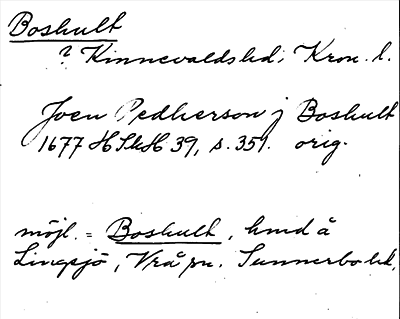 Boshult
? Kinnevalds hd; Kron. l.
Joen Pedherson j Boshult
1677 HSkH 39, s. 351. orig.
möjl. = Boshult, hmd å
Lingsjö, Vrå sn. Sunnerbo hd.